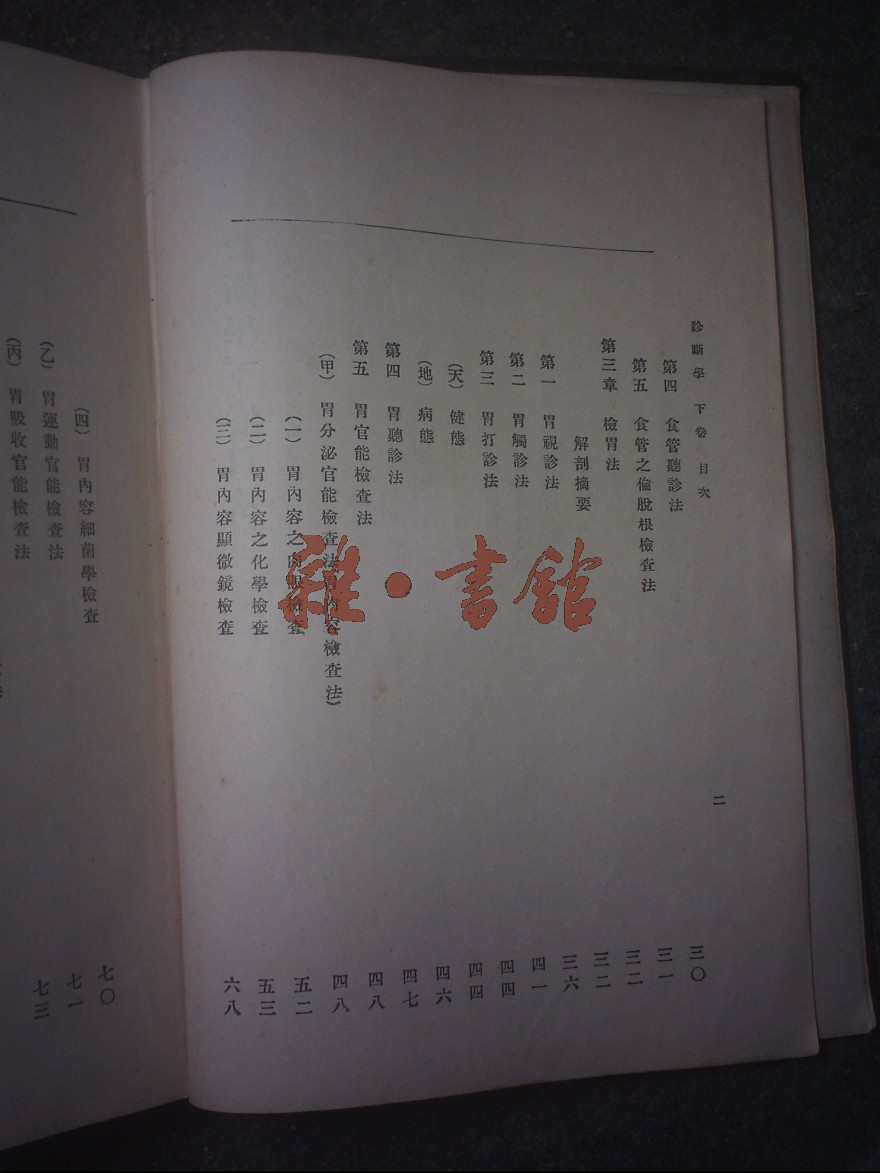 診斷學 下卷 目次 二
第四 食管聽診法 三〇
第五 食管之倫脫根檢查法 三一
第三章 檢胃法 三二
解剖摘要 三二
第一 胃視診法 三六
第二 胃觸診法 四一
第三 胃打診法 四四
(天) 健態 四四
(地) 病態 四六
第四 胃聽診法 四七
第五 胃官能檢查法 四八
(甲) 胃分泌官能檢查法(胃內容檢查法) 四八
(一) 胃內容之肉眼檢查 五二
(二) 胃內容之化學檢查 五三
(三) 胃內容顯微鏡檢查 六八
(四) 胃內容細菌學檢查 七〇
(乙) 胃運動官能檢查法 七一
(丙) 胃吸收官能檢查法 七三
雜·書館